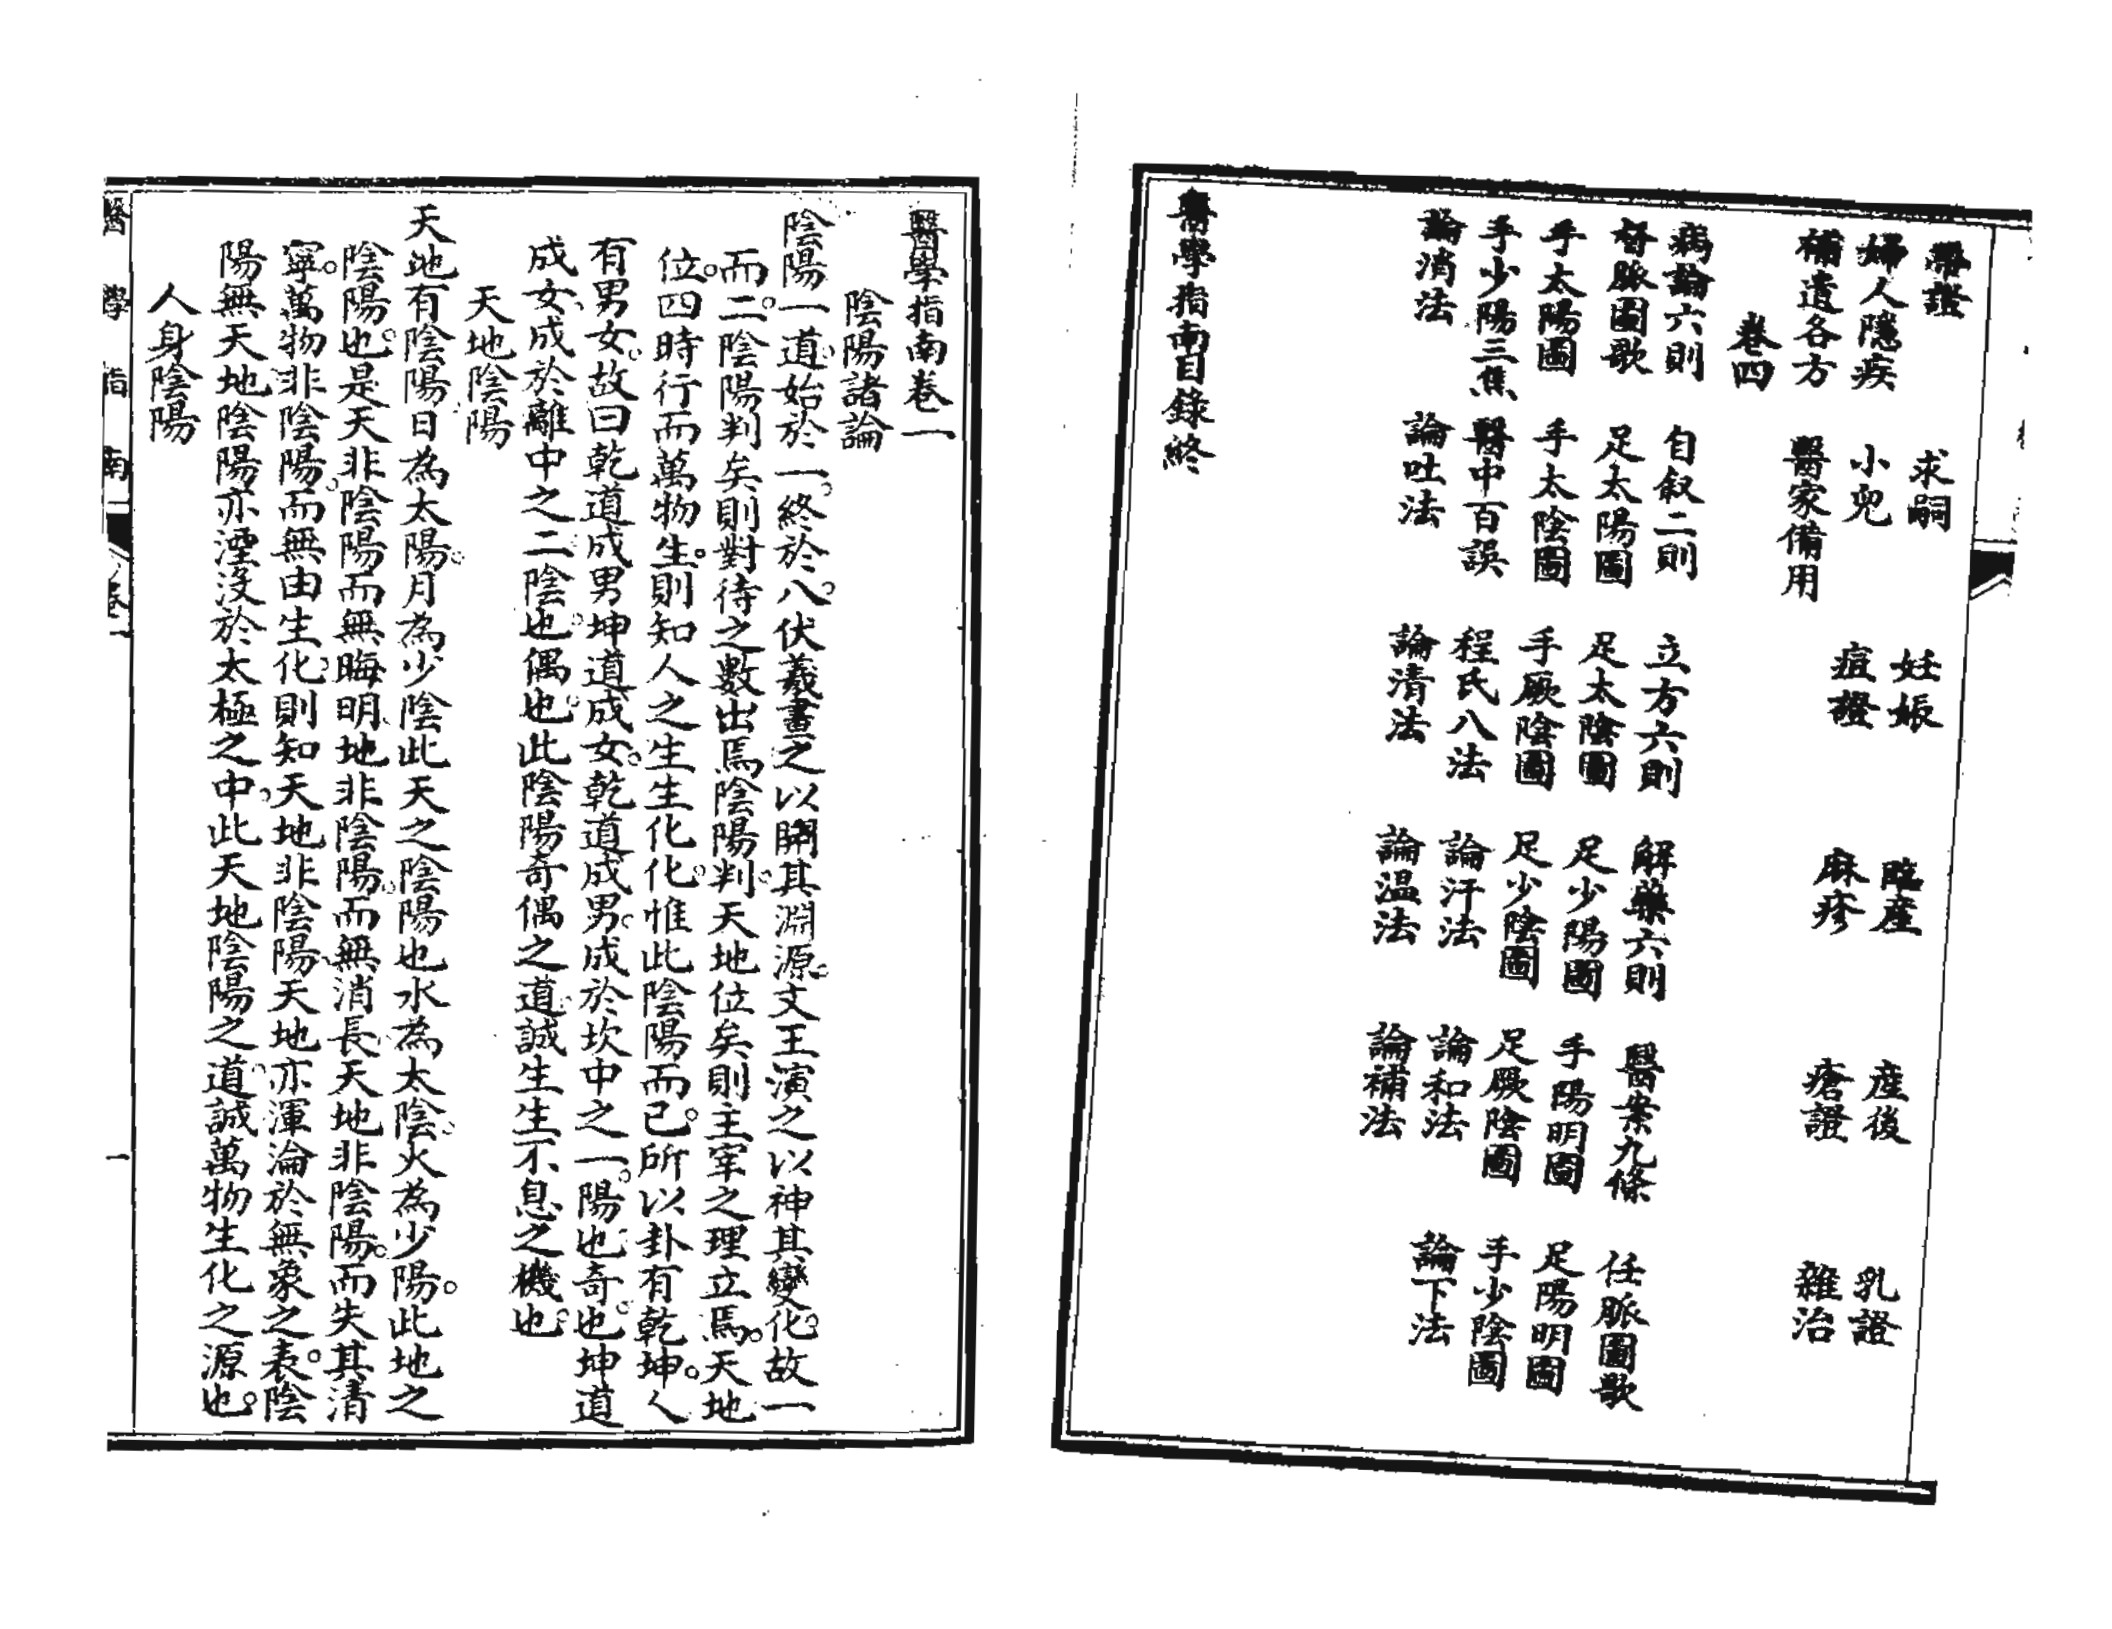 帶證　求嗣　妊娠　臨產　產後　乳證
婦人隱疾　小兒　痘證　麻疹　瘡證　雜治
補遺各方　醫家備用
卷四
病論六則　自叙二則　立方六則　解藥六則　醫案九條　任脈圖歌
督脈圖歌　足太陽圖　足太陰圖　足少陽圖　手陽明圖　足陽明圖
手太陽圖　手太陰圖　手厥陰圖　足少陰圖　足厥陰圖　手少陰圖
手少陽三焦　醫中百誤　程氏八法　論汗法　論和法　論下法
論消法　論吐法　論清法　論温法　論補法
醫學指南目錄終
醫學指南卷一
陰陽諸論
陰陽一道始於一終於八伏羲畫之以開其淵源文王演之以神其變化故一
而二陰陽判矣則對待之數出焉陰陽判天地位矣則主宰之理立焉天地
位四時行而萬物生則知人之生生化化惟此陰陽而已所以卦有乾坤人
有男女故曰乾道成男坤道成女乾道成男成於坎中之一陽也奇也坤道
成女成於離中之二陰也偶也此陰陽奇偶之道誠生生不息之機也
天地陰陽
天地有陰陽日為太陽月為少陰此天之陰陽也水為太陰火為少陽此地之
陰陽也是天非陰陽而無晦明地非陰陽而無消長天地非陰陽而失其清
寧萬物非陰陽而無由生化則知天地非陰陽天地亦渾淪於無象之表陰
陽無天地陰陽亦湮沒於太極之中此天地陰陽之道誠萬物生化之源也
人身陰陽
醫學指南　卷一　一